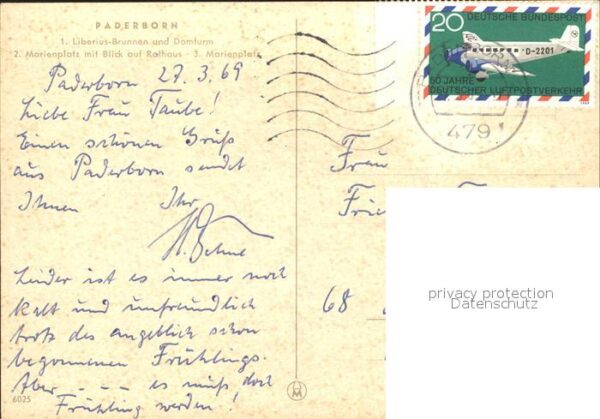 PADERBORN
1. Liberius-Brunnen und Domturm
2. Marienplatz mit Blick auf Rathaus · 3. Marienplatz
Paderborn 27.3.69
Liebe Frau Taube!
Einen schönen Gruß
aus Paderborn sendet
Ihnen Ihr
Leider ist es immer noch
kalt und unfreundlich
trotz des angeblich schon
begonnenen Frühlings.
Aber - - - es muß doch
Frühling werden!
6025
20 DEUTSCHE BUNDESPOST
D-2201
50 JAHRE
DEUTSCHER LUFTPOSTVERKEHR
479
Frau
68
privacy protection
Datenschutz